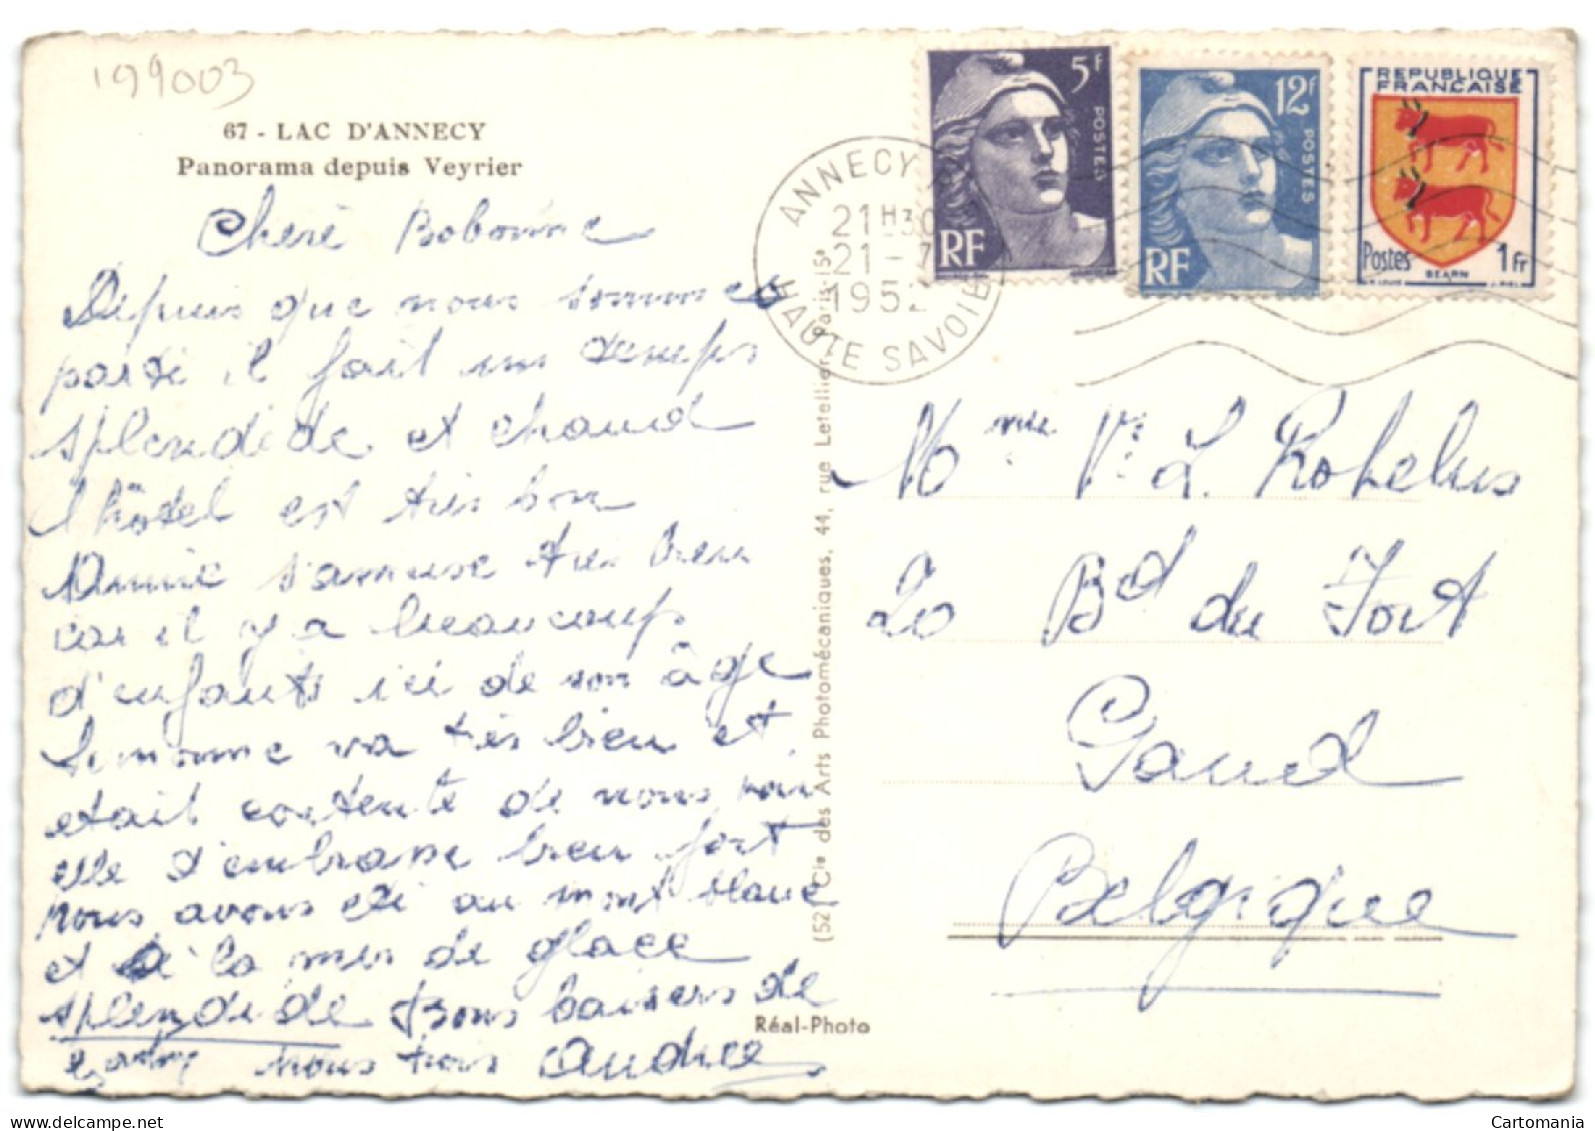 199003
67 - LAC D'ANNECY
Panorama depuis Veyrier
Cheré Bobonne
Depuis que nous sommes
parti il fait un temps
splendide et chaud
l'hôtel est très bon
Annie s'amuse très bien
car il y a beaucoup
d'enfants ici de son âge
Simonne va très bien et
etait contente de nous voir
elle t'embrasse bien fort
nous avons eté au mont blanc
et à la mer de glace
splendide Bons baisers de
nous trois Andrée
5f
POSTES
RF
12f
POSTES
RF
REPUBLIQUE
FRANÇAISE
Postes 1fr
BEARN
ANNECY
21H30
21-7
1952
HAUTE SAVOIE
(52) Cie des Arts Photomécaniques, 44, rue Letellier, Paris-15e
Réal-Photo
Mme Ve L.
20 Bd du Fort
Gand
Belgique
Cartomania